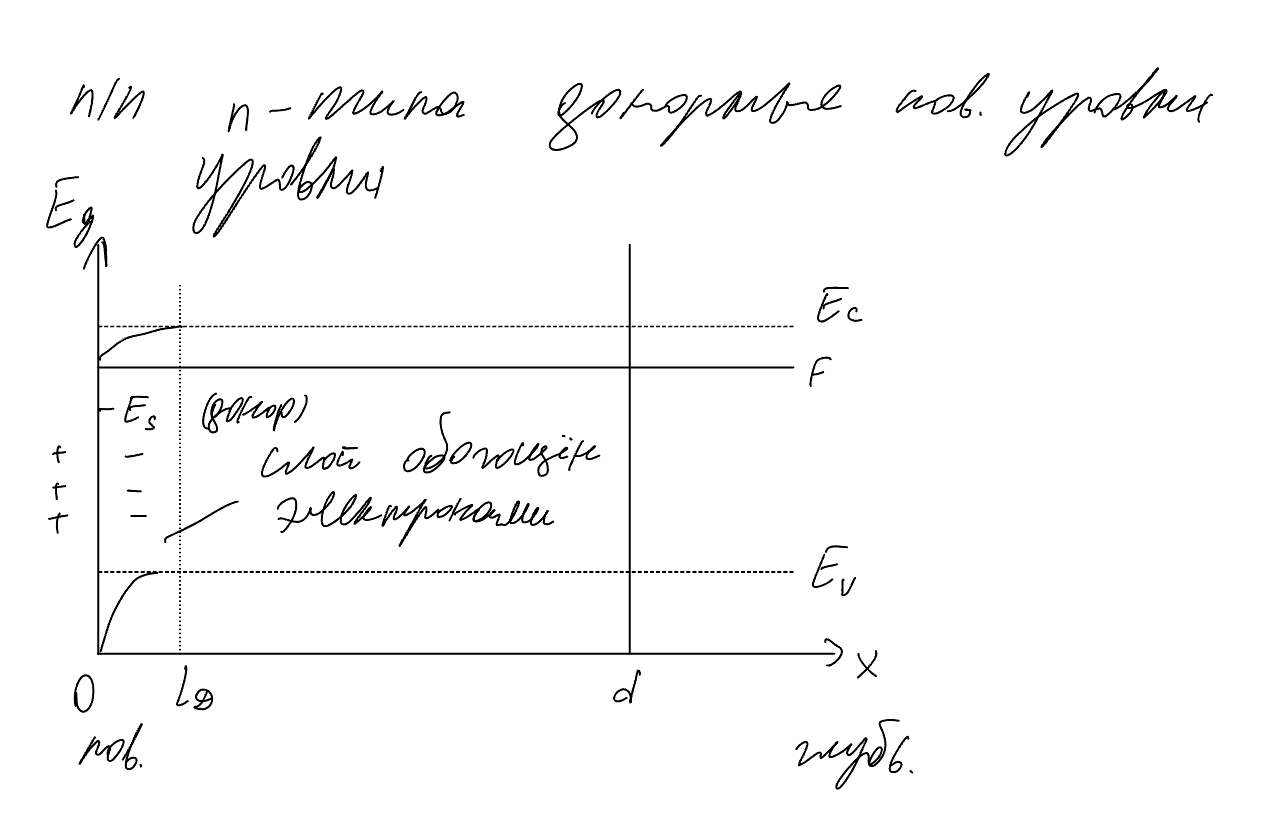 п/п n-типа донорные пов. уровни
уровни
Eg
Ec
F
Es (донор)
+ - слой обогащён
+ - электронами
+ -
Ev
0 lD d x
пов. глуб.